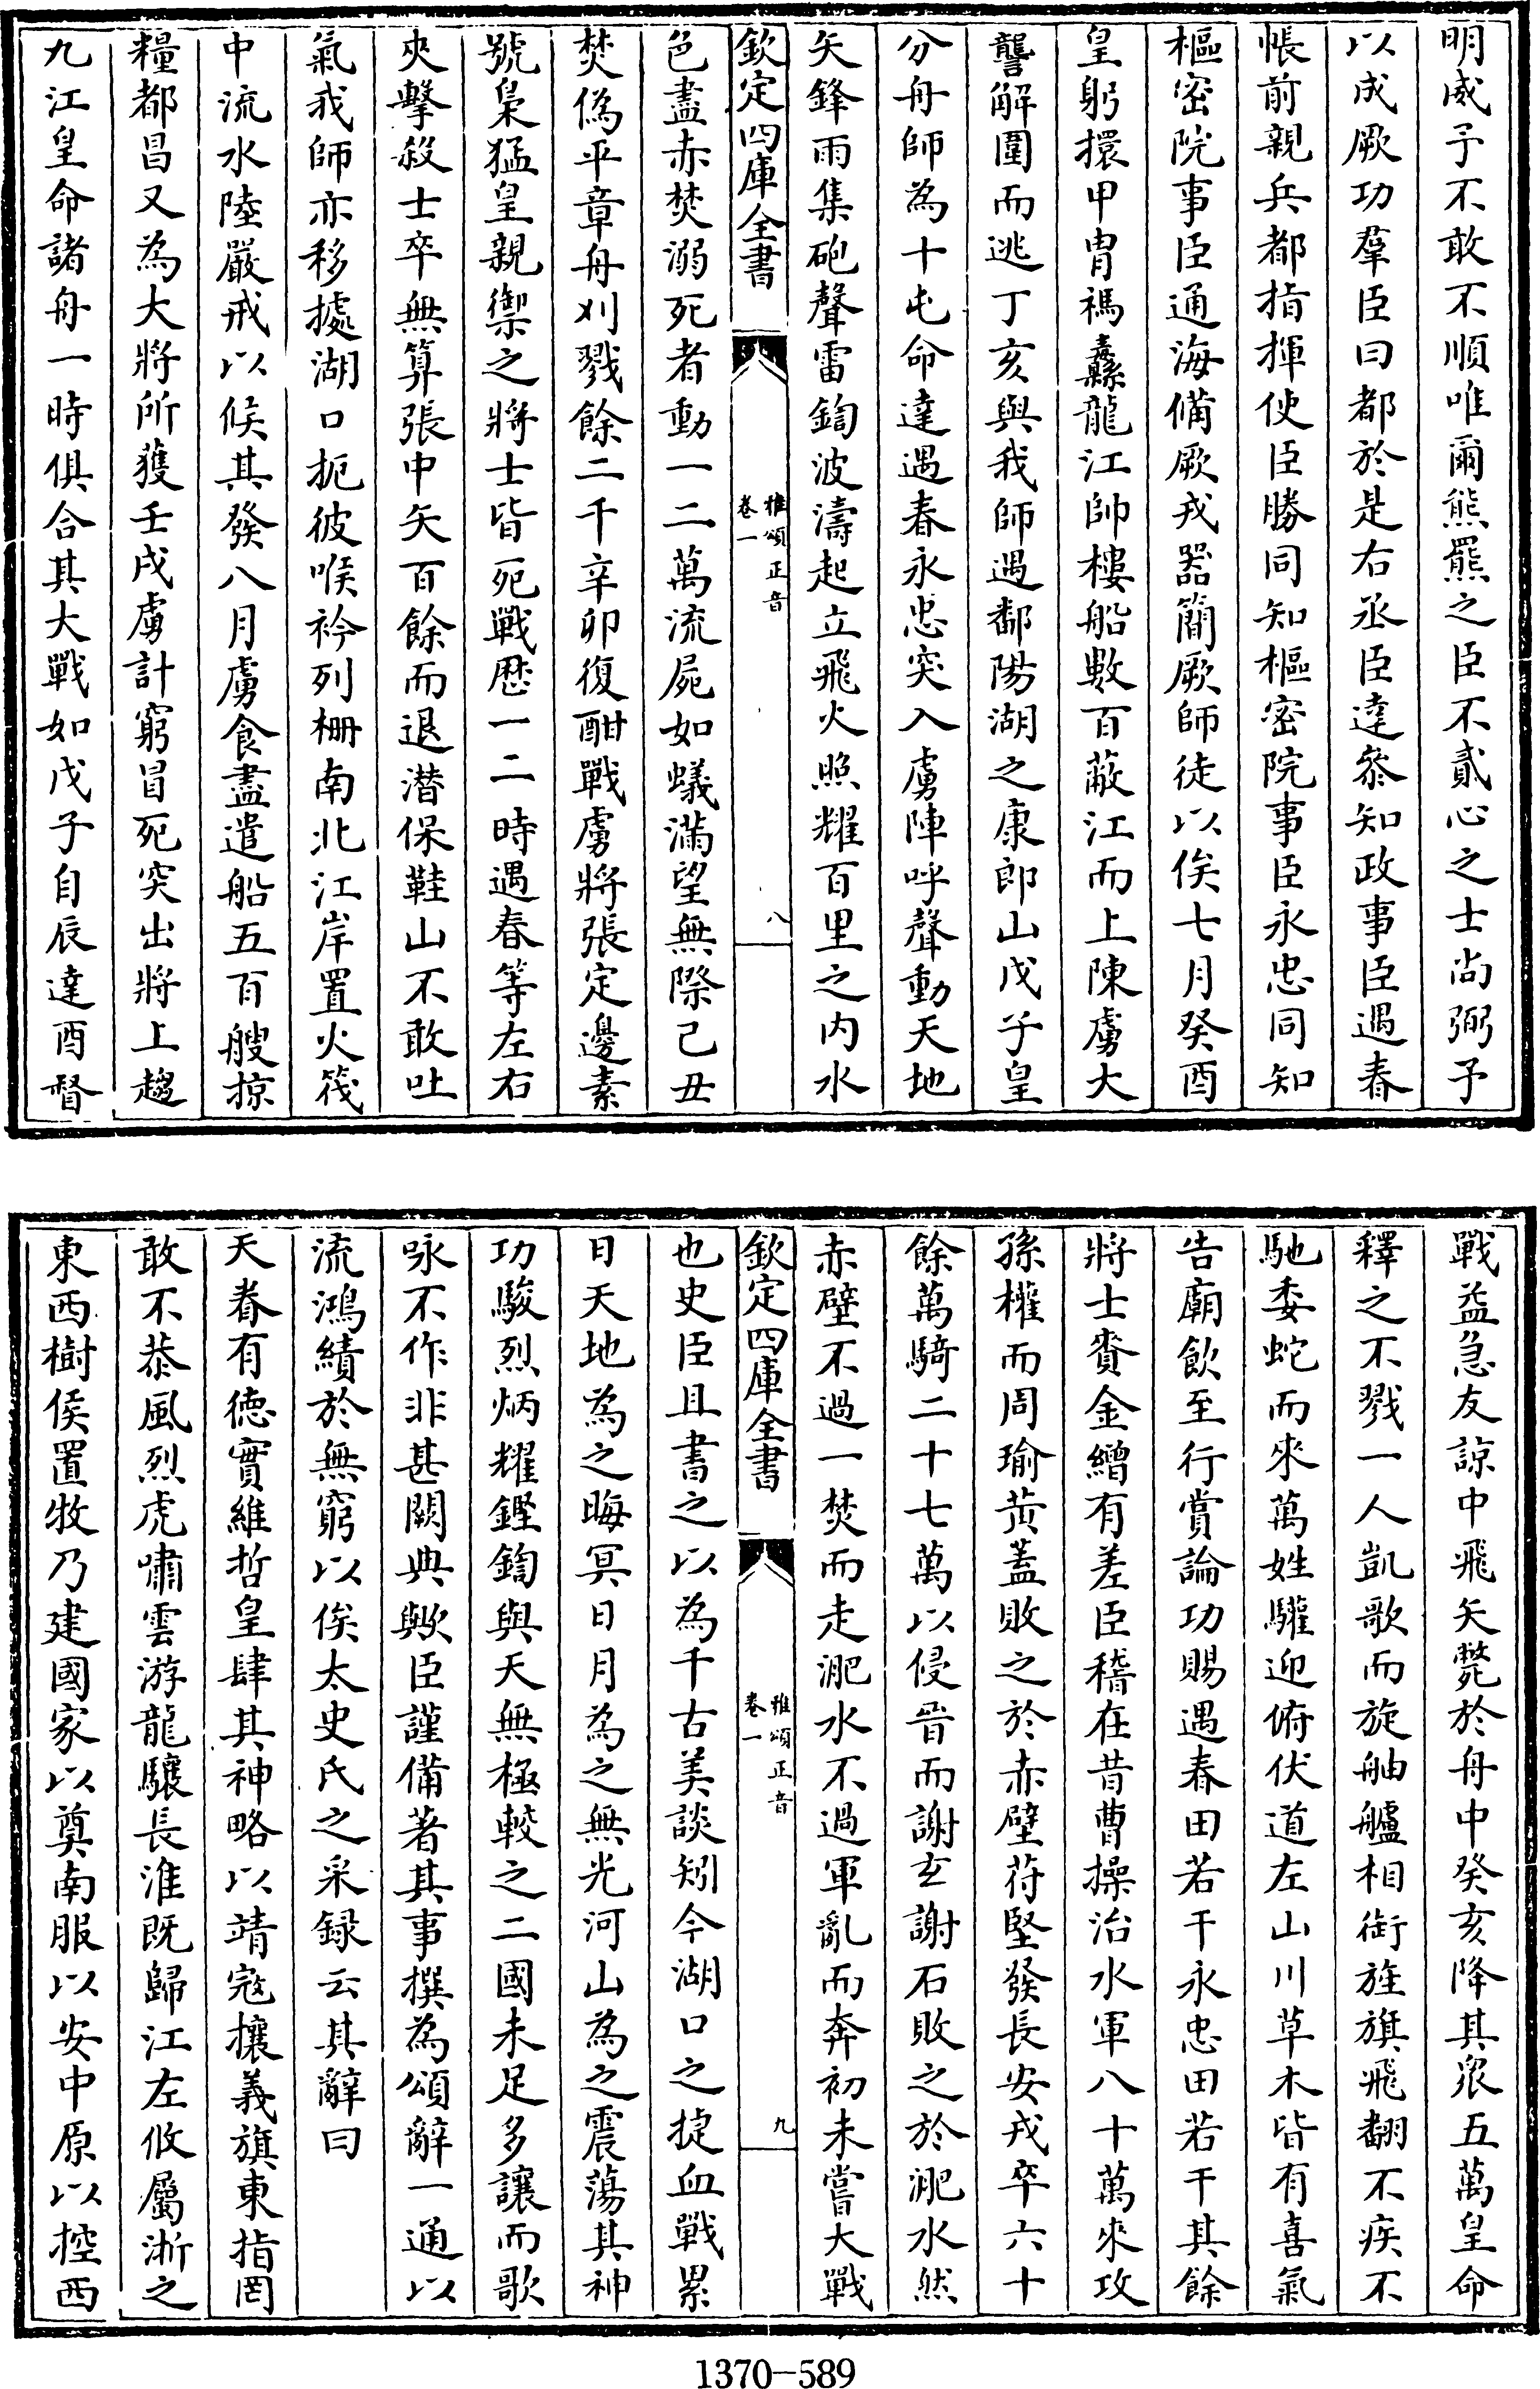 明威予不敢不順唯爾熊羆之臣不貳心之士尚弼予
以成厥功羣臣曰都於是右丞臣達叅知政事臣遇春
帳前親兵都指揮使臣勝同知樞密院事臣永忠同知
樞密院事臣通海備厥戎器簡厥師徒以俟七月癸酉
皇躬擐甲胄禡纛龍江帥樓船數百蔽江而上陳虜大
讋解圍而逃丁亥與我師遇鄱陽湖之康郎山戊子皇
分舟師為十屯命達遇春永忠突入虜陣呼聲動天地
矢鋒雨集砲聲雷鍧波濤起立飛火照耀百里之内水
欽定四庫全書
雅頌正音
卷一
八
色盡赤焚溺死者動一二萬流屍如蟻滿望無際己丑
焚偽平章舟刈戮餘二千辛卯復酣戰虜將張定邊素
號梟猛皇親禦之將士皆死戰歴一二時遇春等左右
夾擊殺士卒無算張中矢百餘而退潛保鞋山不敢吐
氣我師亦移據湖口扼彼喉衿列柵南北江岸置火筏
中流水陸嚴戒以候其發八月虜食盡遣船五百艘掠
糧都昌又為大將所獲壬戌虜計窮冒死突出將上趨
九江皇命諸舟一時俱合其大戰如戊子自辰達酉督
戰益急友諒中飛矢斃於舟中癸亥降其衆五萬皇命
釋之不戮一人凱歌而旋舳艫相銜旌旗飛翻不疾不
馳委蛇而來萬姓驩迎俯伏道左山川草木皆有喜氣
告廟飲至行賞論功賜遇春田若干永忠田若干其餘
將士賚金繒有差臣稽在昔曹操治水軍八十萬來攻
孫權而周瑜黄蓋敗之於赤壁苻堅發長安戎卒六十
餘萬騎二十七萬以侵晉而謝玄謝石敗之於淝水然
赤壁不過一焚而走淝水不過軍亂而奔初未嘗大戰
欽定四庫全書
雅頌正音
卷一
九
也史臣且書之以為千古美談矧今湖口之捷血戰累
日天地為之晦冥日月為之無光河山為之震蕩其神
功駿烈炳耀鏗鍧與天無極較之二國未足多讓而歌
咏不作非甚闕典歟臣謹備著其事撰為頌辭一通以
流鴻績於無窮以俟太史氏之采録云其辭曰
天眷有德實維哲皇肆其神略以靖寇攘義旗東指罔
敢不恭風烈虎嘯雲游龍驤長淮既歸江左攸屬浙之
東西樹侯置牧乃建國家以奠南服以安中原以控西
1370-589